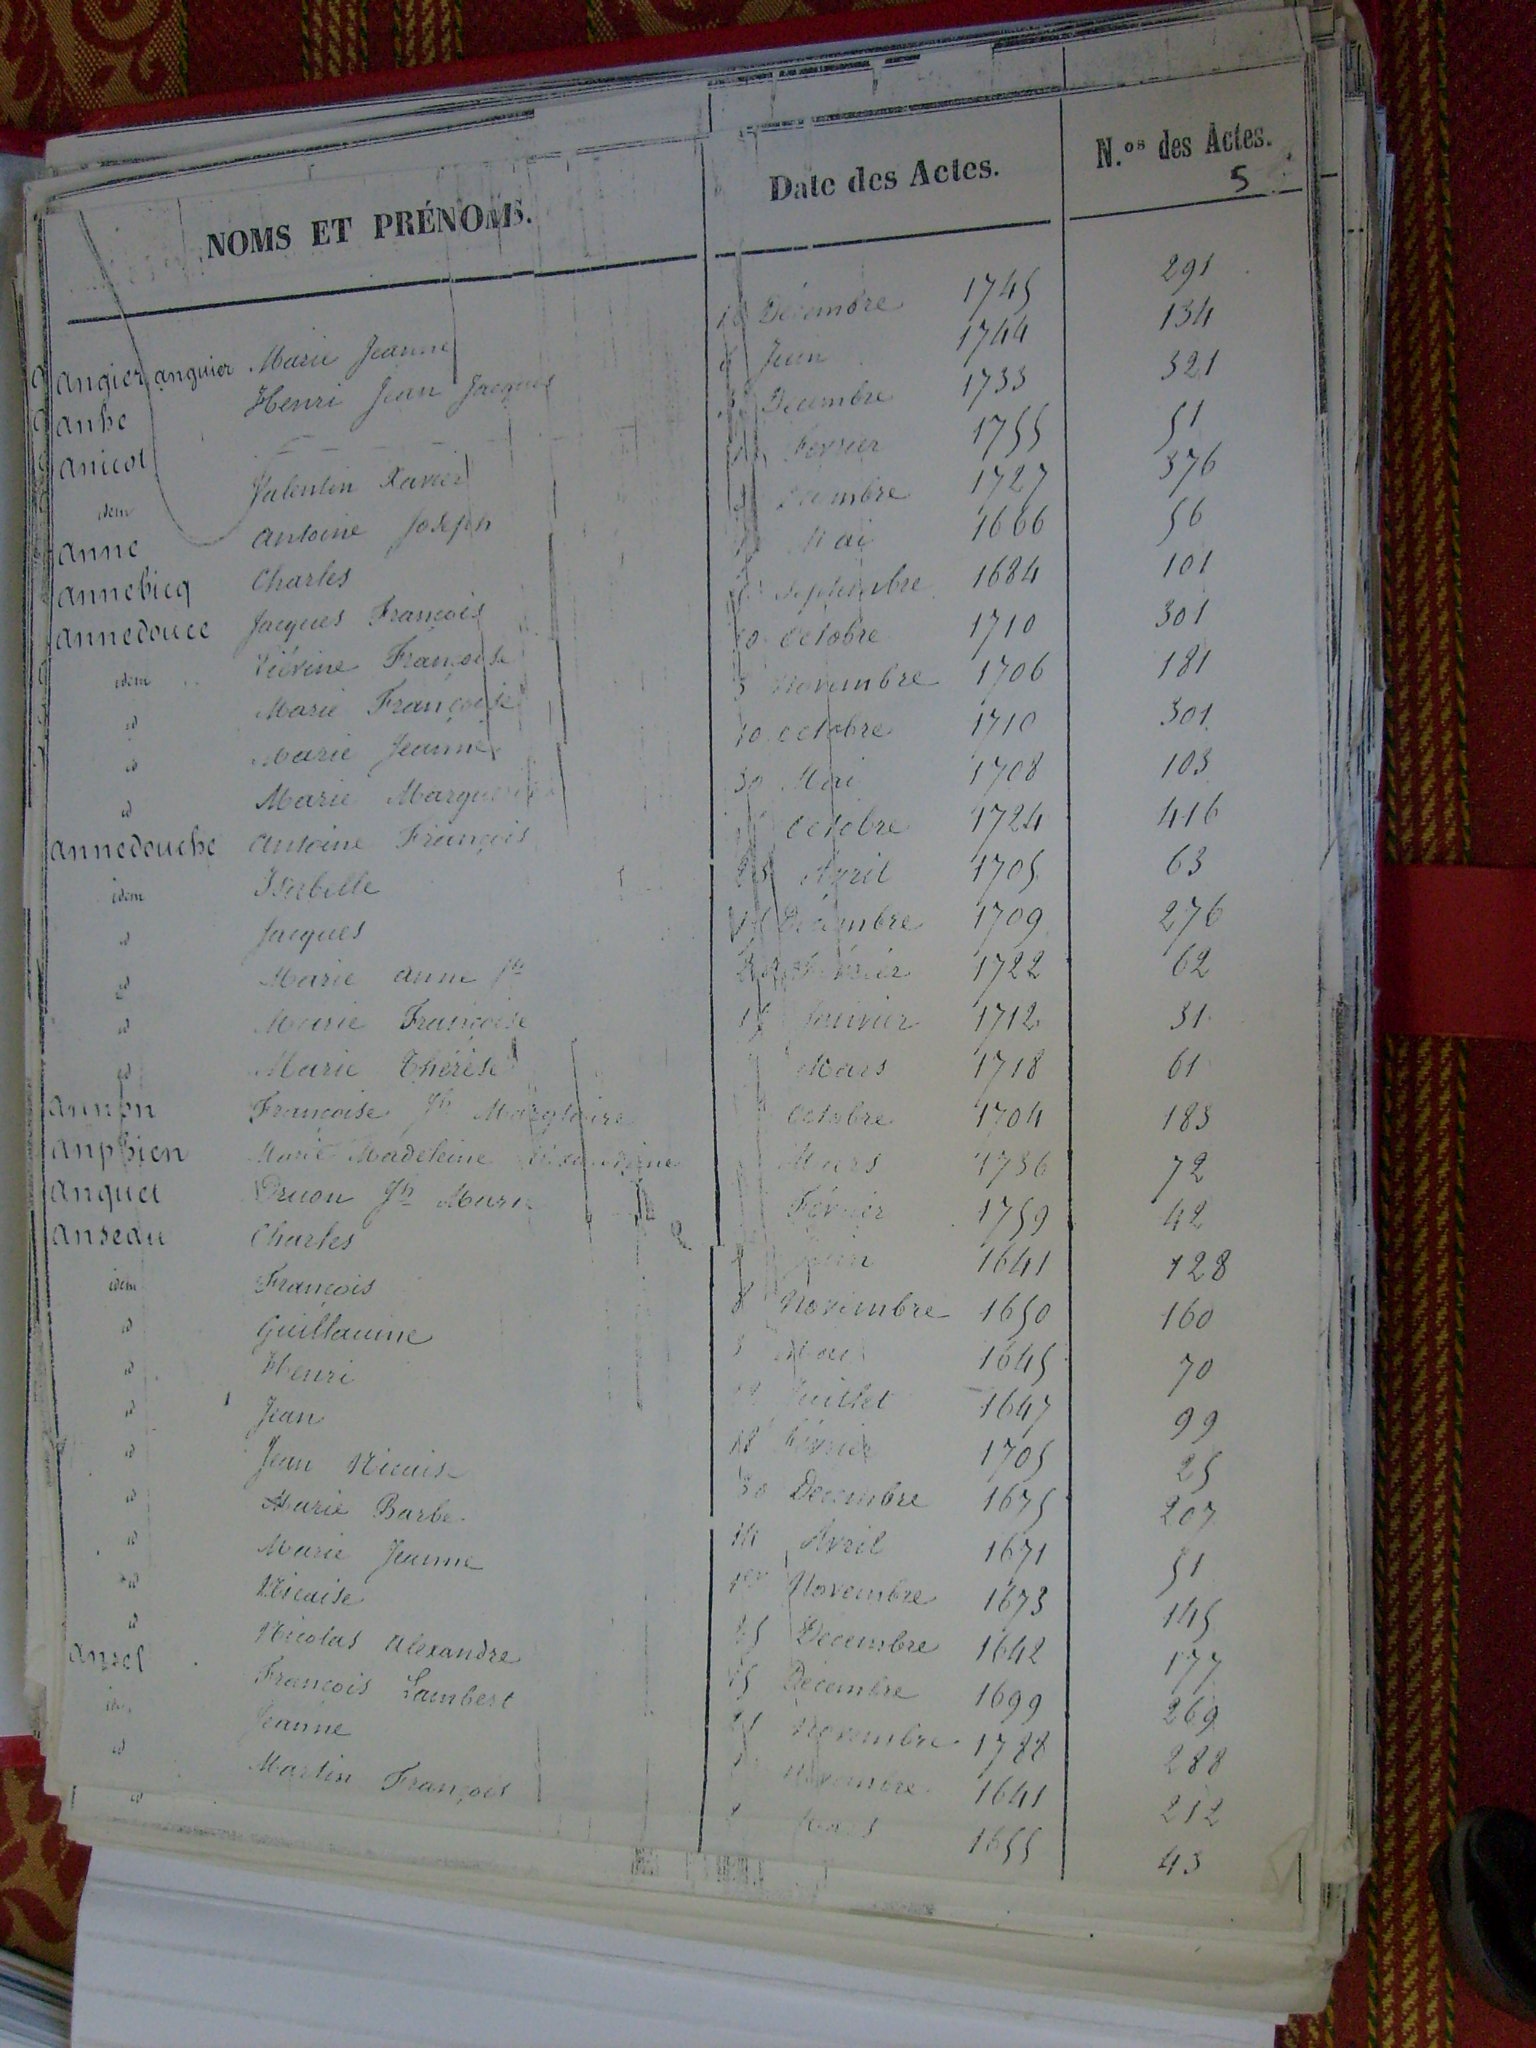 NOMS ET PRÉNOMS. Date des Actes. N.os des Actes.
5
angier, anguier Marie Jeanne Décembre 1745 291
anhe Henri Jean Jacques Juin 1744 134
anicot Décembre 1733 321
idem Valentin Xavier Février 1755 51
anne antoine Joseph Décembre 1727 376
annebicq Charles Mai 1666 56
annedouce Jacques François Septembre 1684 101
idem Liévine Françoise 10 octobre 1710 301
id Marie Françoise 3 Novembre 1706 181
id Marie Jeanne 10 octobre 1710 301
id Marie Marguerite 30 Mai 1708 103
annedouche antoine François octobre 1724 416
idem Isabelle Avril 1705 63
id Jacques Décembre 1709 276
id Marie anne Jh Février 1722 62
id Marie Françoise Janvier 1712 31
id Marie Thérèse Mars 1718 61
annon Françoise Jh octobre 1704 183
anphien Marie Madeleine Mars 1736 72
anquet Druon Jh Marie Février 1759 42
anseau Charles Juin 1641 128
idem François 8 Novembre 1650 160
id Guillaume Mai 1645 70
id Henri Juillet 1647 99
id Jean 18 Février 1705 25
id Jean Nicaise 30 Décembre 1675 207
id Marie Barbe 14 Avril 1671 51
id Marie Jeanne 1er Novembre 1673 145
id Nicaise Décembre 1642 177
id Nicolas Alexandre 15 Décembre 1699 269
ansel François Lambert Novembre 1788 288
id Jeanne Novembre 1641 212
id Martin François Mars 1655 43